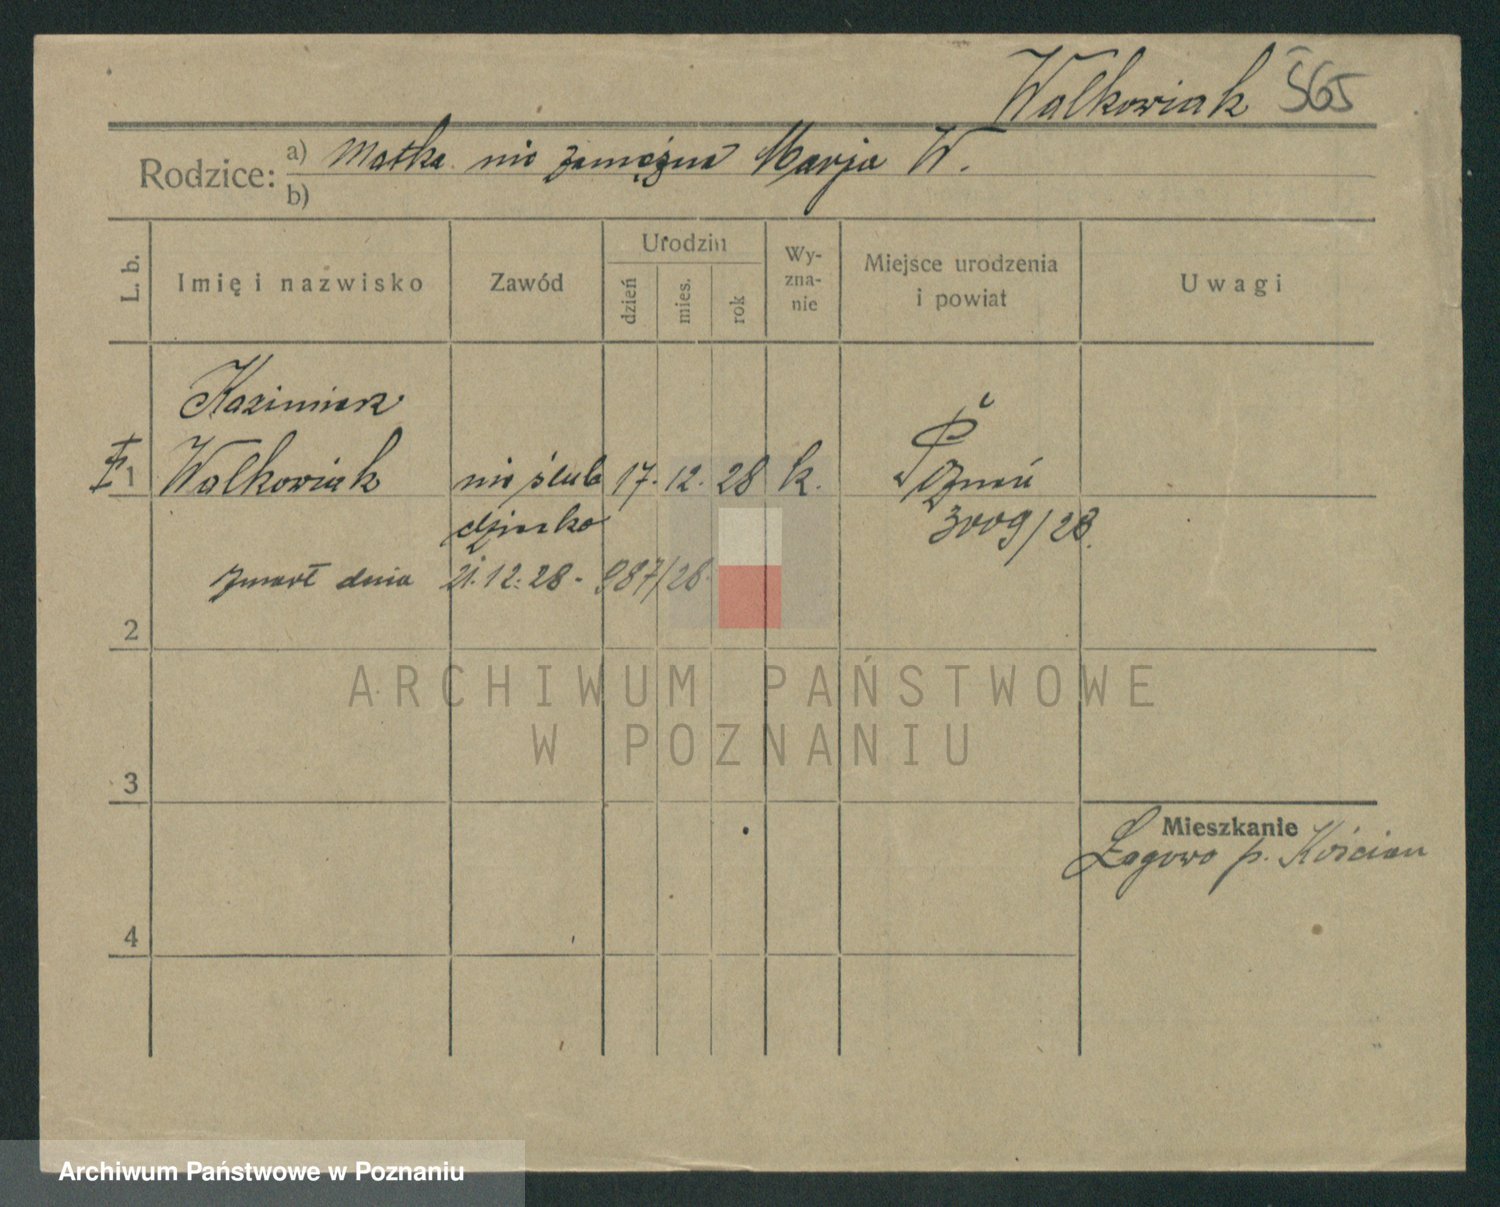 Walkowiak 565
Rodzice: a) Matka nie zamężna Marja W.
b)
L. b. Imię i nazwisko Zawód Urodzin dzień mies. rok Wyznanie Miejsce urodzenia i powiat Uwagi
Kazimierz
1 Walkowiak nie ślub 17. 12. 28 k. Poznań
dziecko 3009/28.
zmarł dnia 21.12.28 - 987/28.
2
ARCHIWUM PAŃSTWOWE
W POZNANIU
3
Mieszkanie
Łagowo p. Kościan
4
Archiwum Państwowe w Poznaniu